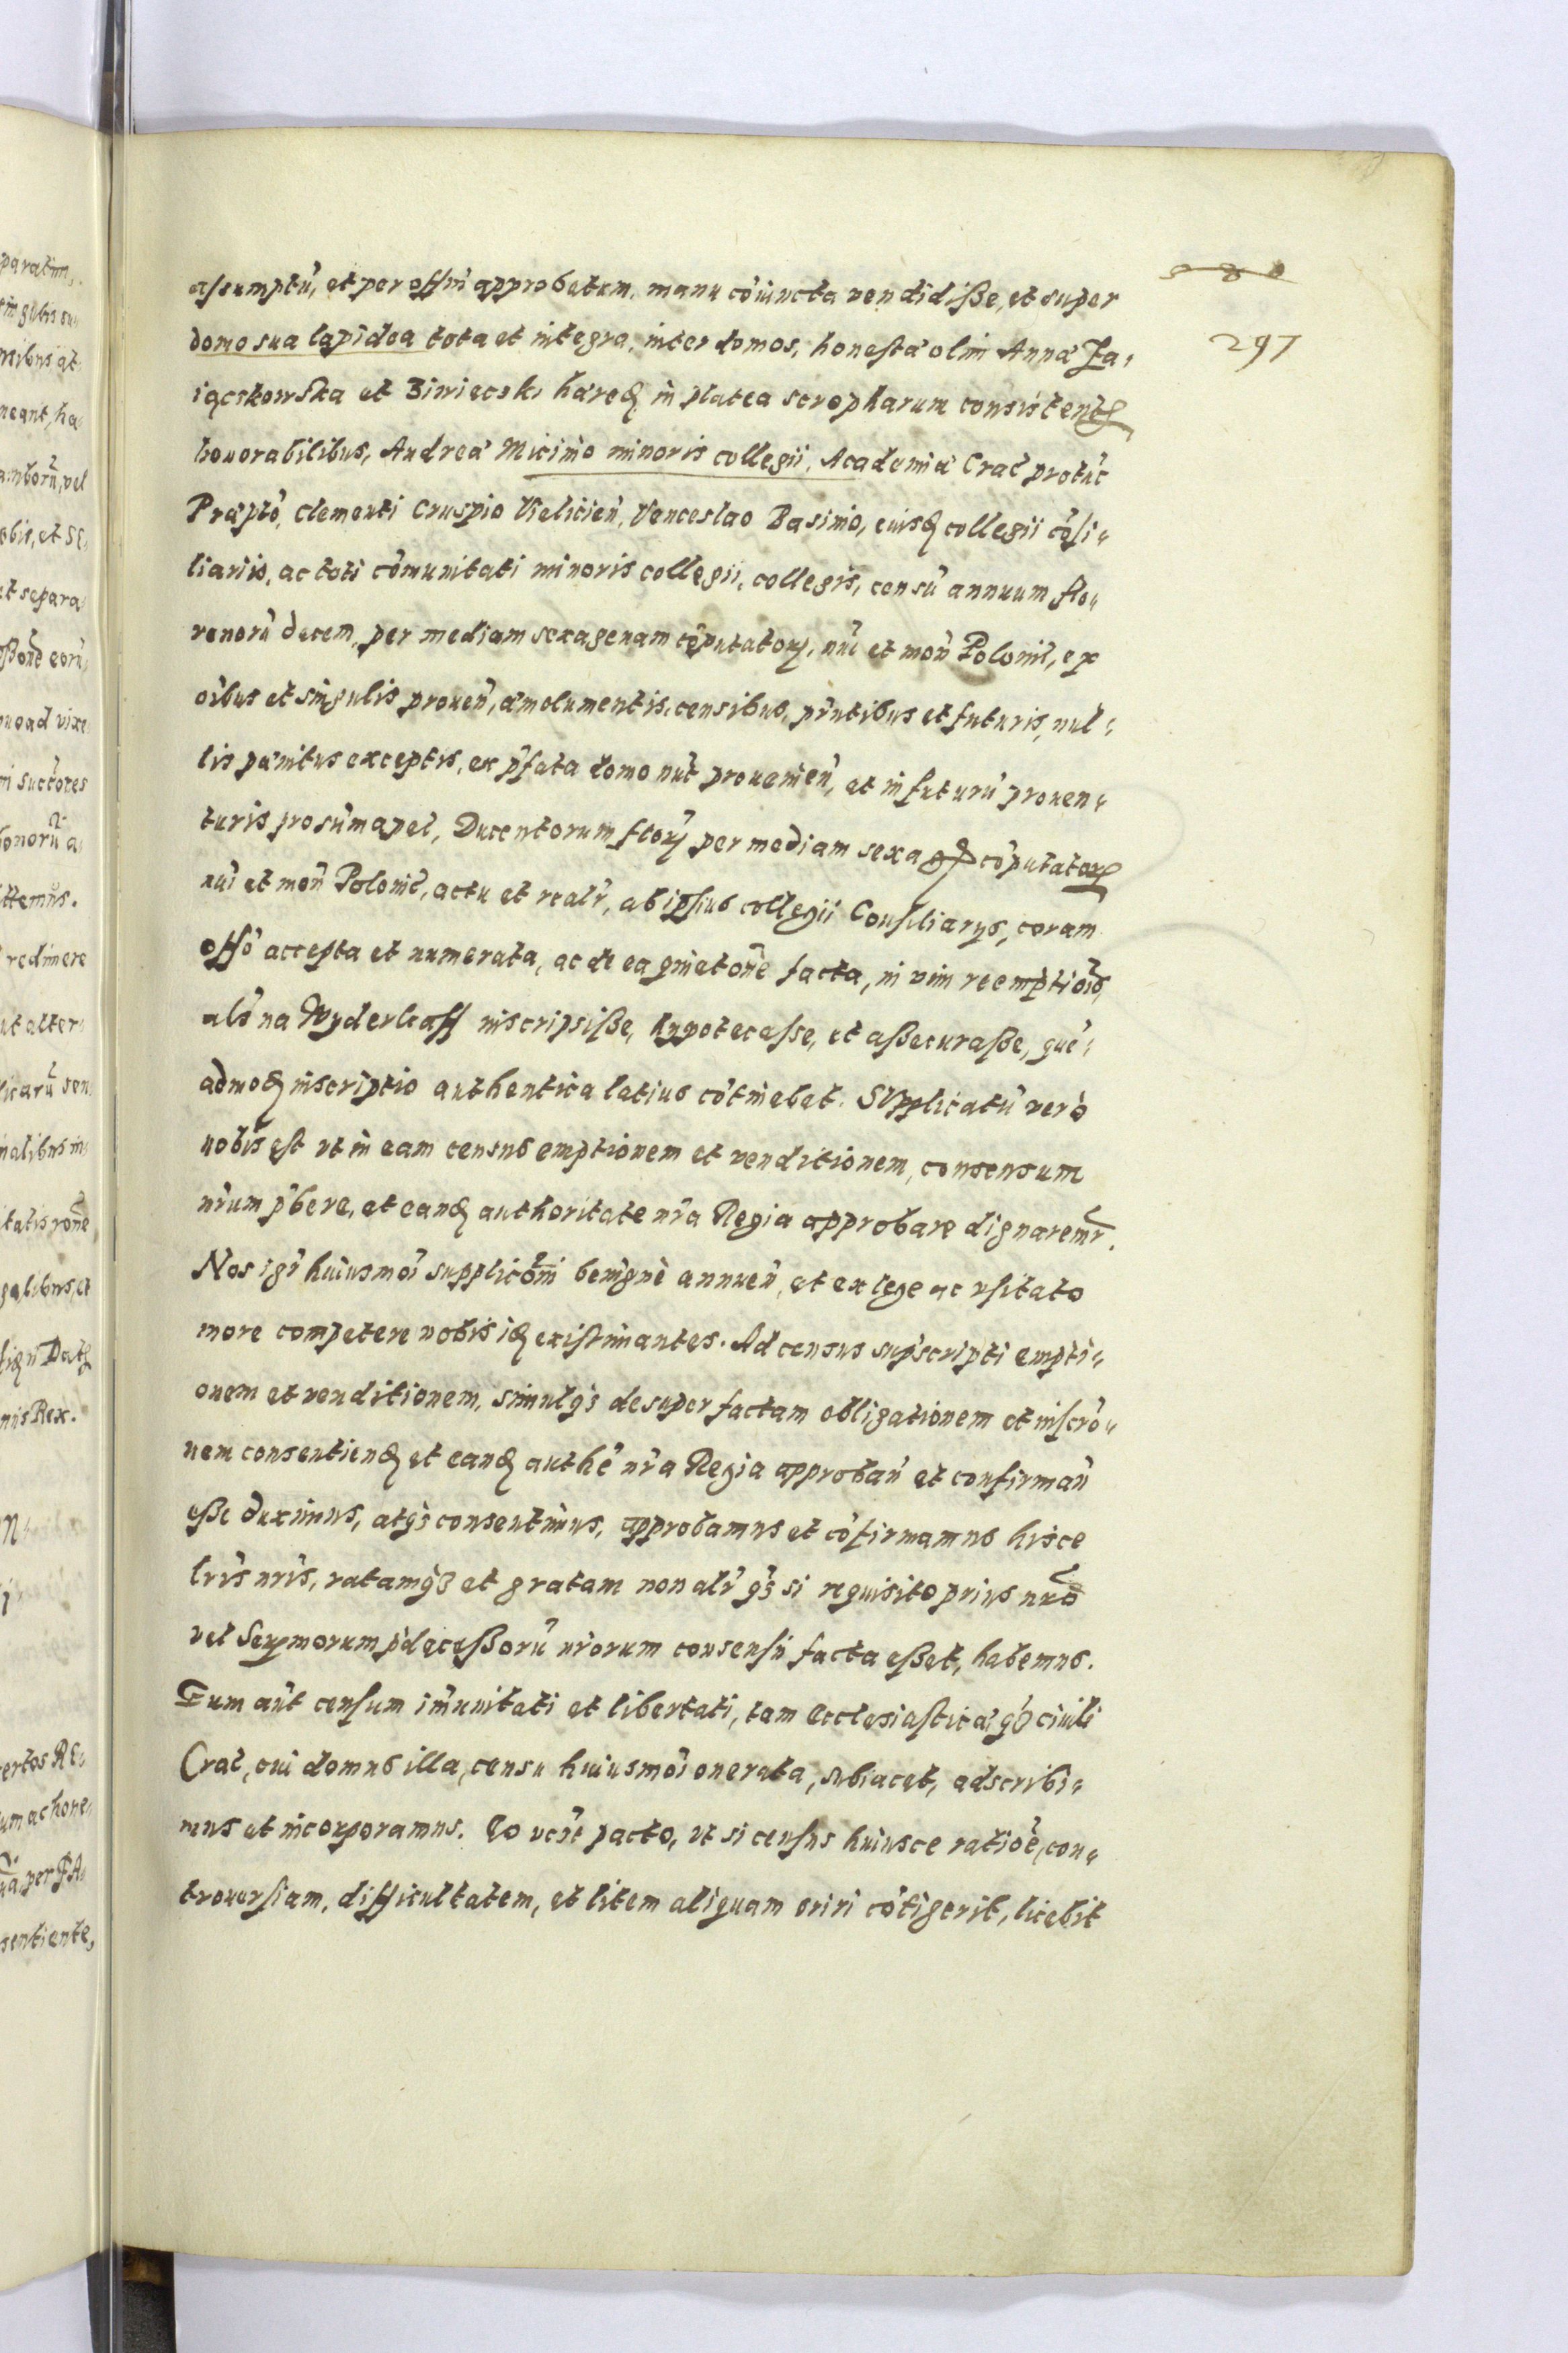 297
assumptū, et per offm̄ approbatum, manu cōiuncta vendidiße, et super
domo sua lapidea tota et integra, inter domos, honestæ olim Annæ Za„
iączkowska et Ziwiecski hæred, in platea scropharum consistent
honorabilibus, Andreæ Micinio minoris collegii, Academiæ Crac̄ protūc
Præpto, Clementi Cruspio Vieliciēn, Venceslao Basinio, eiusd collegii cōsi„
liariis, ac toti cōmunitati minoris collegii, collegis, censū annuum flo„
renorū decem, per mediam sexagenam cōputatoꝝ, nūi et mon̄ Polonic̄, ex
oībus et singulis proven̄, æmolumentis, censibus, pn̄tibus et futuris, nul„
lis pænitus exceptis, ex p̄fata domo nūc provenien̄, et in futurū proven„
turis pro sūma pec̄, Ducentorum flcoꝝ per mediam sexag cōputatoꝝ
nūi et mon̄ Polonic̄, actu et realr̄, ab ipsius collegii Consiliarys, coram
offo accepta et numerata, ac de ea quietōne facta, in vim reemptiōis,
als̄ na Wyderkaff inscripsiße, hypotecasse, et aßecuraße, quē„
admod inscriptio authentica latius cōtinebat. Supplicatū verò
nobis est vt in eam census emptionem et venditionem, consensum
nr̄um p̄bere, et eand authoritate nr̄a Regia approbare dignaremr̄.
Nos igr̄ huiusmōi supplicōni benignè annuen̄, et ex lege ac vsitato
more competere nobis id existimantes. Ad census sup̄scripti empti„
onem et venditionem, simulqꝫ desuper factam obligationem et inscrō„
nem consentiend et eand authē nr̄a Regia approban̄ et confirman̄
eße duximus, atqꝫ consentimus, approbamus et cōfirmamus hisce
lr̄is nr̄is, ratamqꝫ et gratam non alr̄ qꝫ si requisito prius nr̄o
vel Serꝫmorum p̄deceßorū nr̄orum consensū facta eßet, habemus.
Eum aūt censum im̄unitati et libertati, tam Ecclesiasticæ qꝫ civili
Crac̄, cui domus illa, censu huiusmōi onerata, subiacet, adscribi„
mus et incorporamus. Eo vert pacto, vt si census huiusce ratiōe, con„
troversiam, difficultatem, et litem aliquam oriri cōtigerit, licebit